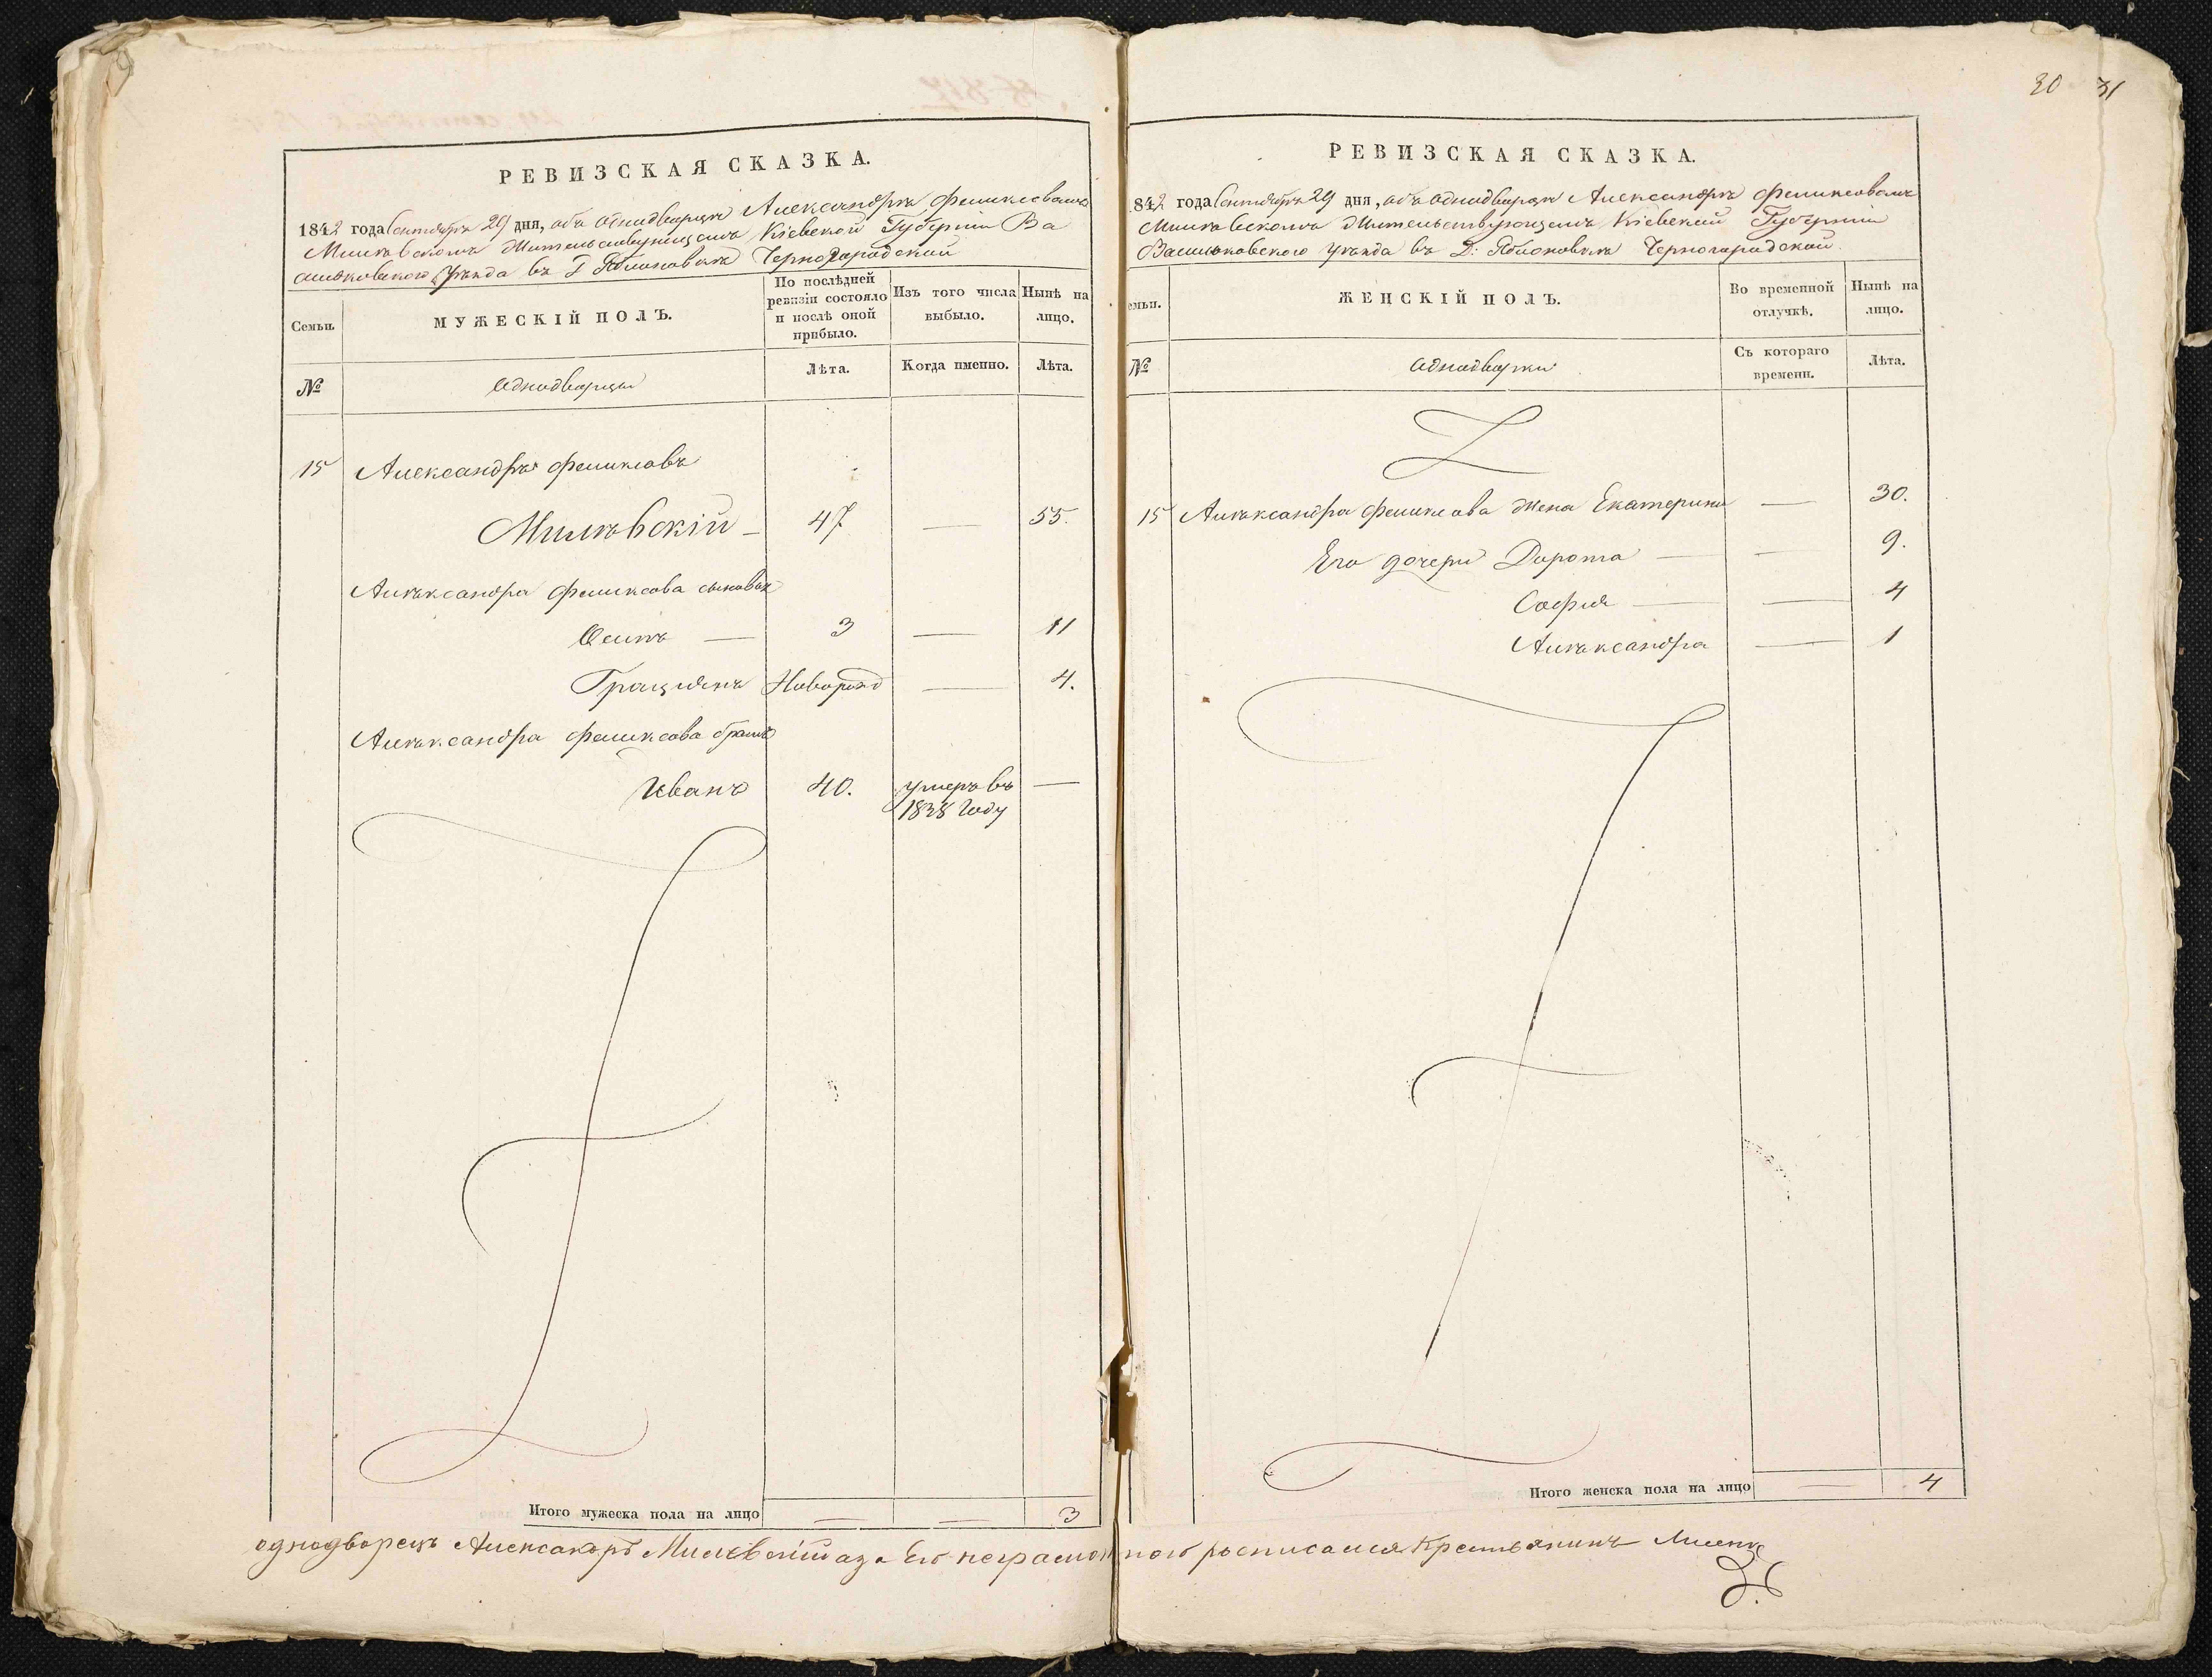 30 31
РЕВИЗСКАЯ СКАЗКА.
1842 года Сентября 29 дня, объ однодворцѣ Александрѣ Феликсовомъ
Милѣвскомъ Жительствующемъ Кіевской Губерніи Ва
сильковского Уѣзда въ Д Яблоновкѣ Черногородской
Семьи.
МУЖЕСКІЙ ПОЛЪ.
По послѣдней ревизіи состояло и послѣ оной прибыло.
Изъ того числа выбыло.
Нынѣ на лицо.
№
однодворцы
Лѣта.
Когда именно.
Лѣта.
15 Александръ Феликсовъ
Милѣвскій – 47 — 55.
Алѣксандра Феликсова сыновья
Осипъ — 3 — 11
Граціянъ Новорожд — 4.
Алѣксандра Феликсова братъ
Иванъ 40. умеръ въ —
1838 Году
Итого мужеска пола на лицо — — 3
РЕВИЗСКАЯ СКАЗКА.
842 года Сентября 29 дня, объ однодворцѣ Александрѣ Феликсовомъ
Милѣвскомъ Жительствующемъ Кіевской Губерніи
Васильковского Уѣзда въ Д: Яблоновкѣ Черногородской
емьи.
ЖЕНСКІЙ ПОЛЪ.
Во временной отлучкѣ.
Нынѣ на лицо.
№
однодворки
Съ котораго времени.
Лѣта.
15 Алѣксандра Феликсова жена Екатерина — 30.
Его дочери Дорота — — 9.
Софія — — 4
Алѣксандра — 1
Итого женска пола на лицо — 4
однодворецъ Александръ Милевскій а за Его неграмотного росписался Крестьянинъ